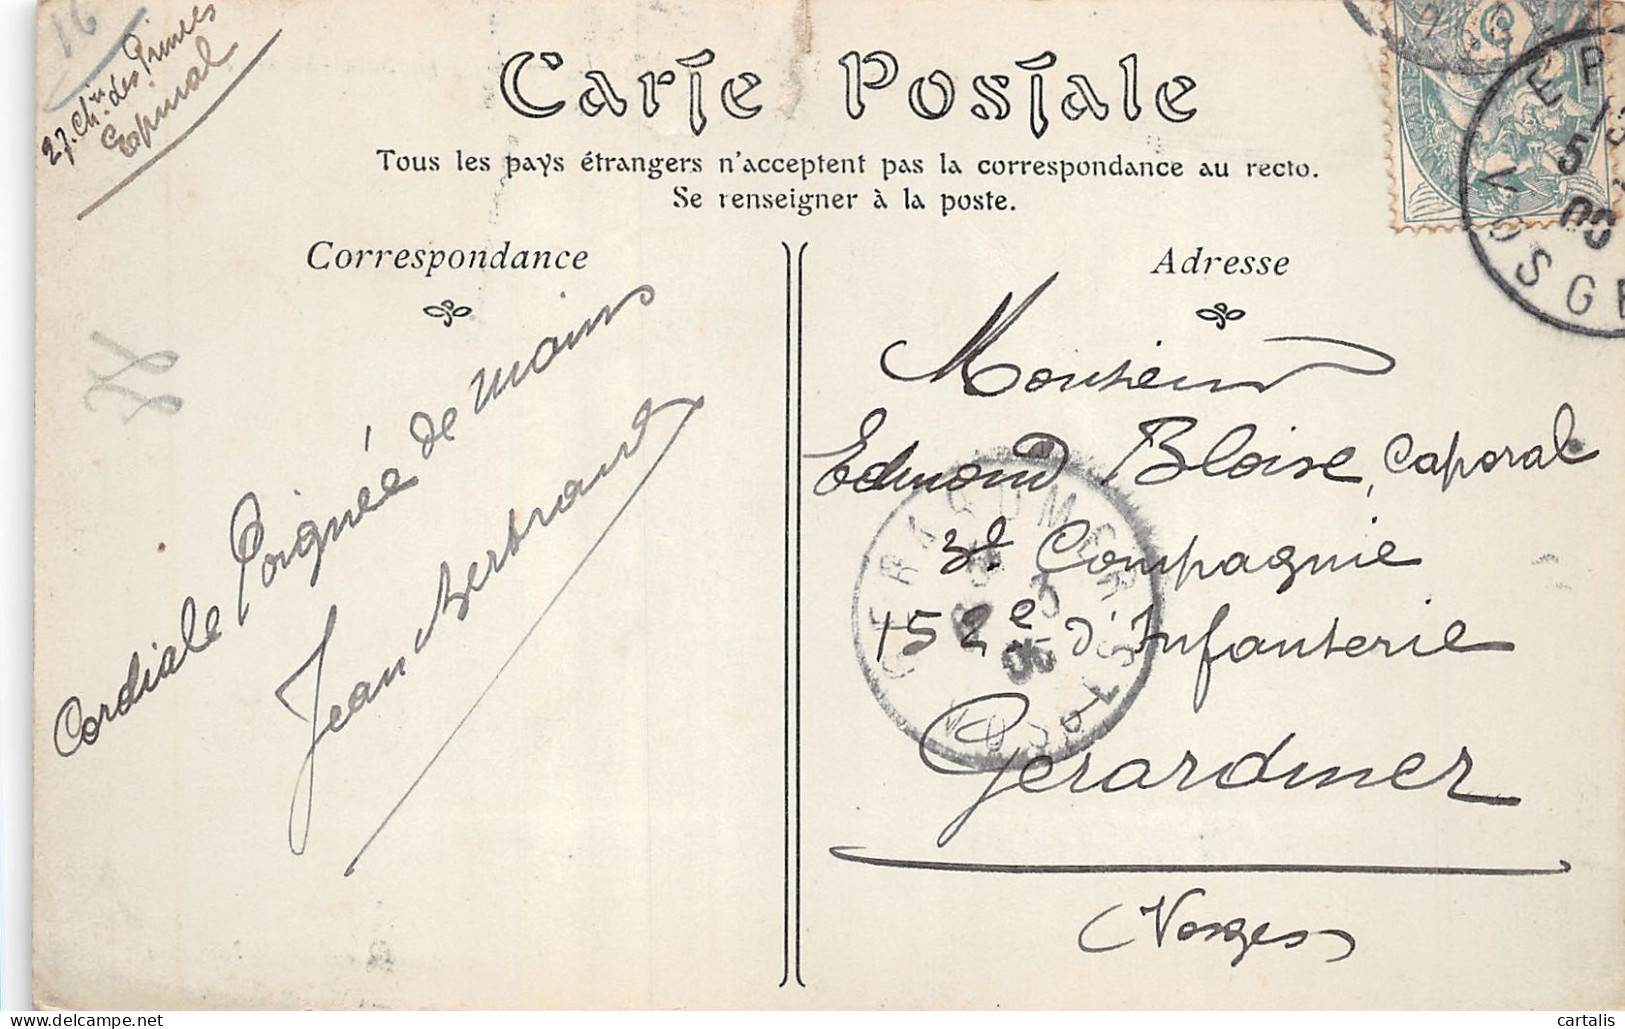 16
27. Ch.in des Princes
Epinal
Carte Postale
Tous les pays étrangers n'acceptent pas la correspondance au recto.
Se renseigner à la poste.
Correspondance
Cordiale Poignée de mains
Jean Bertrand
Adresse
Monsieur
Edmond Bloise, Caporal
3e Compagnie
152e d'Infanterie
Gerardmer
(Vosges)
EP
13
5
VOSGE
GERARDMER
VOSGES
cartalis